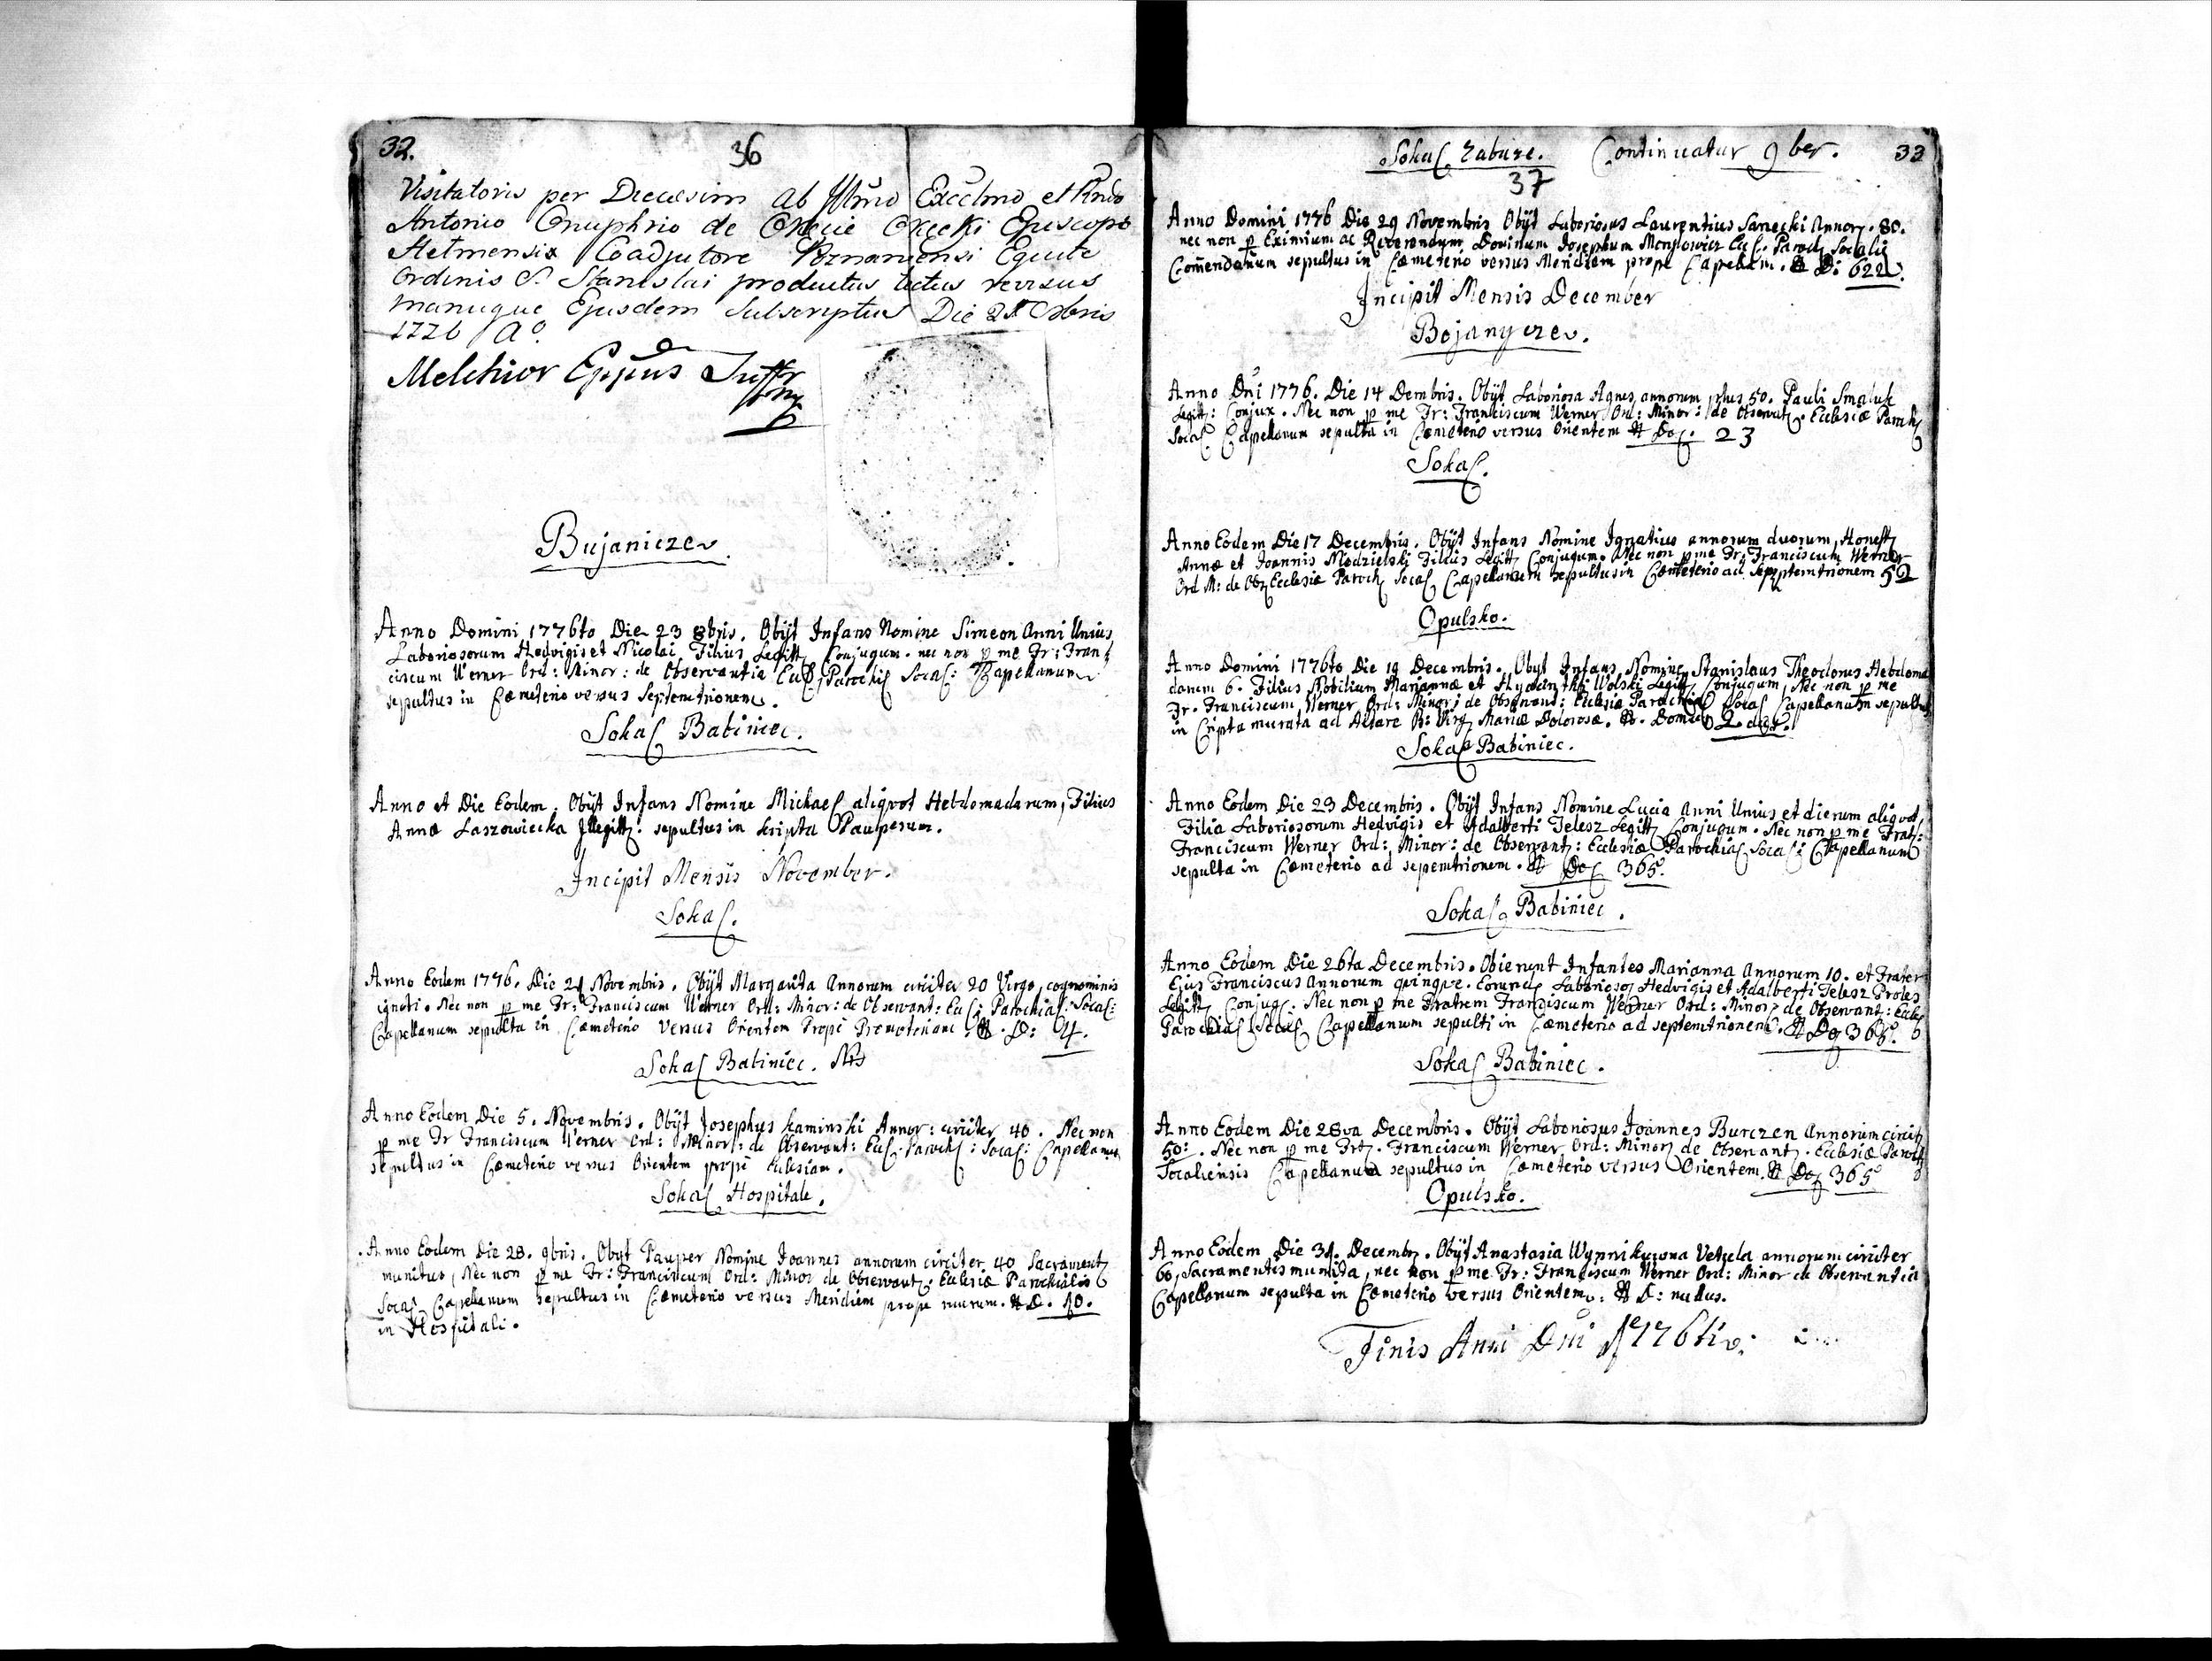 32.
36
Visitatoris per Diecæsim ab Illmo Excelmo et Rndo
Antonio Onuphrio de Okęcie Okęcki Episcopo
Helmensis Coadjutore Poznaniensi Equite
Ordinis S. Stanislai productus lectus revisus
manuque Ejusdem Subscriptus Die 21 Xbris
1776 Aº.
Melchior Eppus Suffr
Bujaniczev.
Anno Domini 1776to Die 23 8bris. Obijt Infans Nomine Simeon Anni Unius
Laboriosorum Hedvigis et Nicolai Filius Legitt Conjugum. nec non p me Fr: Fran
ciscum Werner Ord: Minor: de Observantia Eccl: Parochis Socal: Capellanum
sepultus in Cæmeterio versus Septemtrionem.
Sokal Babiniec.
Anno et Die Eodem. Obijt Infans Nomine Michael aliqvot Hebdomadarum, Filius
Annæ Laszowiecka Illegitt: sepultus in Cripta Pauperum.
Incipit Mensis November.
Sokal.
Anno Eodem 1776. Die 21 Novembris. Obijt Margarita Annorum circiter 20 Virgo, cognominis
ignoti. Nec non p me Fr: Franciscum Werner Ord: Minor: de Observant: Eccl: Parochial: Socal:
Capellanum sepulta in Cæmeterio Versus Orientem Propè D: 4.
Sokal Babiniec.
Anno Eodem Die 5. Novembris. Obijt Josephus Kaminski Annor: circiter 40. Nec non
p me Fr Franciscum Verner Ord: Minor: de Observant: Eccl. Paroch: Socal: Capellanum
sepultus in Cæmeterio versus Orientem propè Eclesiam.
Sokal Hospitale.
Anno Eodem Die 28. 9bris. Obijt Pauper Nomine Joannes annorum circiter 40 Sacrament
munitus, Nec non p me Fr: Franciscum Ord: Minor de Observant: Eclesiæ Parochialis
Socal Capellanum sepultus in Cæmeterio versus Meridiem prope murum. D. 10.
in Hospitali.
Sokal Zabuze. Continuatur 9ber. 33
37
Anno Domini 1776 Die 29 Novembris Obijt Laboriosus Laurentius Sanecki Annor. 80.
nec non p Eximium ac Reverendum Dominum Josephum Eccl. Paroch Socalis
Comendarium sepultus in Cæmeterio versus Meridiem prope Capellam. D: 622.
Incipit Mensis December
Bojanyczev.
Anno Dni 1776. Die 14 Dembris. Obijt Laboriosa Agnes, annorum plus 50. Pauli Smaluk
Legitt: Conjux. Nec non p me Fr: Franciscum Werner Ord: Minor: de Observat. Ecclesiæ Paroch
Socal Capellanum sepulta in Cæmeterio versus Orientem 23
Sokal.
Anno Eodem Die 17 Decembris. Obijt Infans Nomine Ignatius annorum duorum, Honest
Annæ et Joannis Niedzielski Filius Legitt Conjugum. Nec non p me Fr. Franciscum Werner
Ord M: de Obz Ecclesiæ Paroch Socal Capellanum sepultus in Cæmeterio ad Sepptemtrionem 52
Opulsko.
Anno Domini 1776to Die 19 Decembris. Obijt Infans Nomine Stanislaus Theodorus Hebdoma
darum 6. Filius Nobilium Mariannæ et Hyacinthi Wolski Legitt. Conjugum, Nec non p me
Fr. Franciscum Werner Ord: Minor: de Observand: Ecclesiæ Parochia Socal Capellanum sepultus
in Cripta murata ad Altare B: Virg Mariæ Dolorosæ.
Sokal Babiniec.
Anno Eodem Die 23 Decembris. Obijt Infans Nomine Lucia Anni Unius et dierum aliqvot,
Filia Laboriosorum Hedvigis et Adalberti Telesz Legitt Conjugum. Nec non p me Frat:
Franciscum Werner Ord: Minor: de Observant: Ecclesiæ Parochial Socal: Capellanum
sepulta in Cæmeterio ad sepemtrionem. 365.
Sokal Babiniec.
Anno Eodem Die 26ta Decembris. Obierunt Infantes Marianna Annorum 10. et Frater
Ejus Franciscus Annorum quinqve. Eorund Laborioso Hedvigis et Adalberti Telesz Proles
Legitt Conjug. Nec non p me Fratrem Franciscum Werner Ord: Minor de Observant: Eccles
Parochial Socal Capellanum sepulti in Cæmeterio ad septemtrionem. 365.
Sokal Babiniec.
Anno Eodem Die 28va Decembris. Obijt Laboriosus Joannes Burczen Annorum circit
50. Nec non p me Frt. Franciscum Werner Ord: Minor de Observant. Ecclesiæ Paroch
Socaliensis Capellanum sepultus in Cæmeterio versus Orientem. 365
Opulsko.
Anno Eodem Die 31. Decemb. Obijt Anastasia Wynnikuwna Vetula annorum circiter
60, Sacramentis munita, nec non p me Fr: Franciscum Werner Ord: Minor de Observantia
Capellanum sepulta in Cæmeterio versus Orientem: D: nullus.
Finis Anni Dni 1776ti.